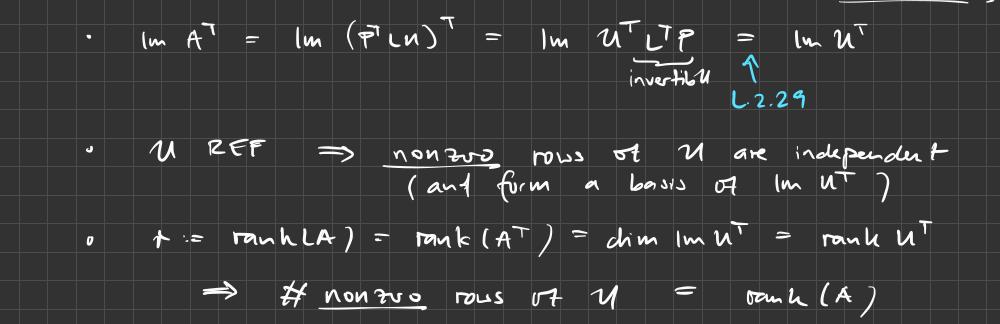 · Im Aᵀ = Im (PᵀLU)ᵀ = Im UᵀLᵀP = Im Uᵀ
invertible
L.2.29
· U REF ⇒ nonzero rows of U are independent
(and form a basis of Im Uᵀ)
· r := rank(A) = rank(Aᵀ) = dim Im Uᵀ = rank Uᵀ
⇒ # nonzero rows of U = rank(A)